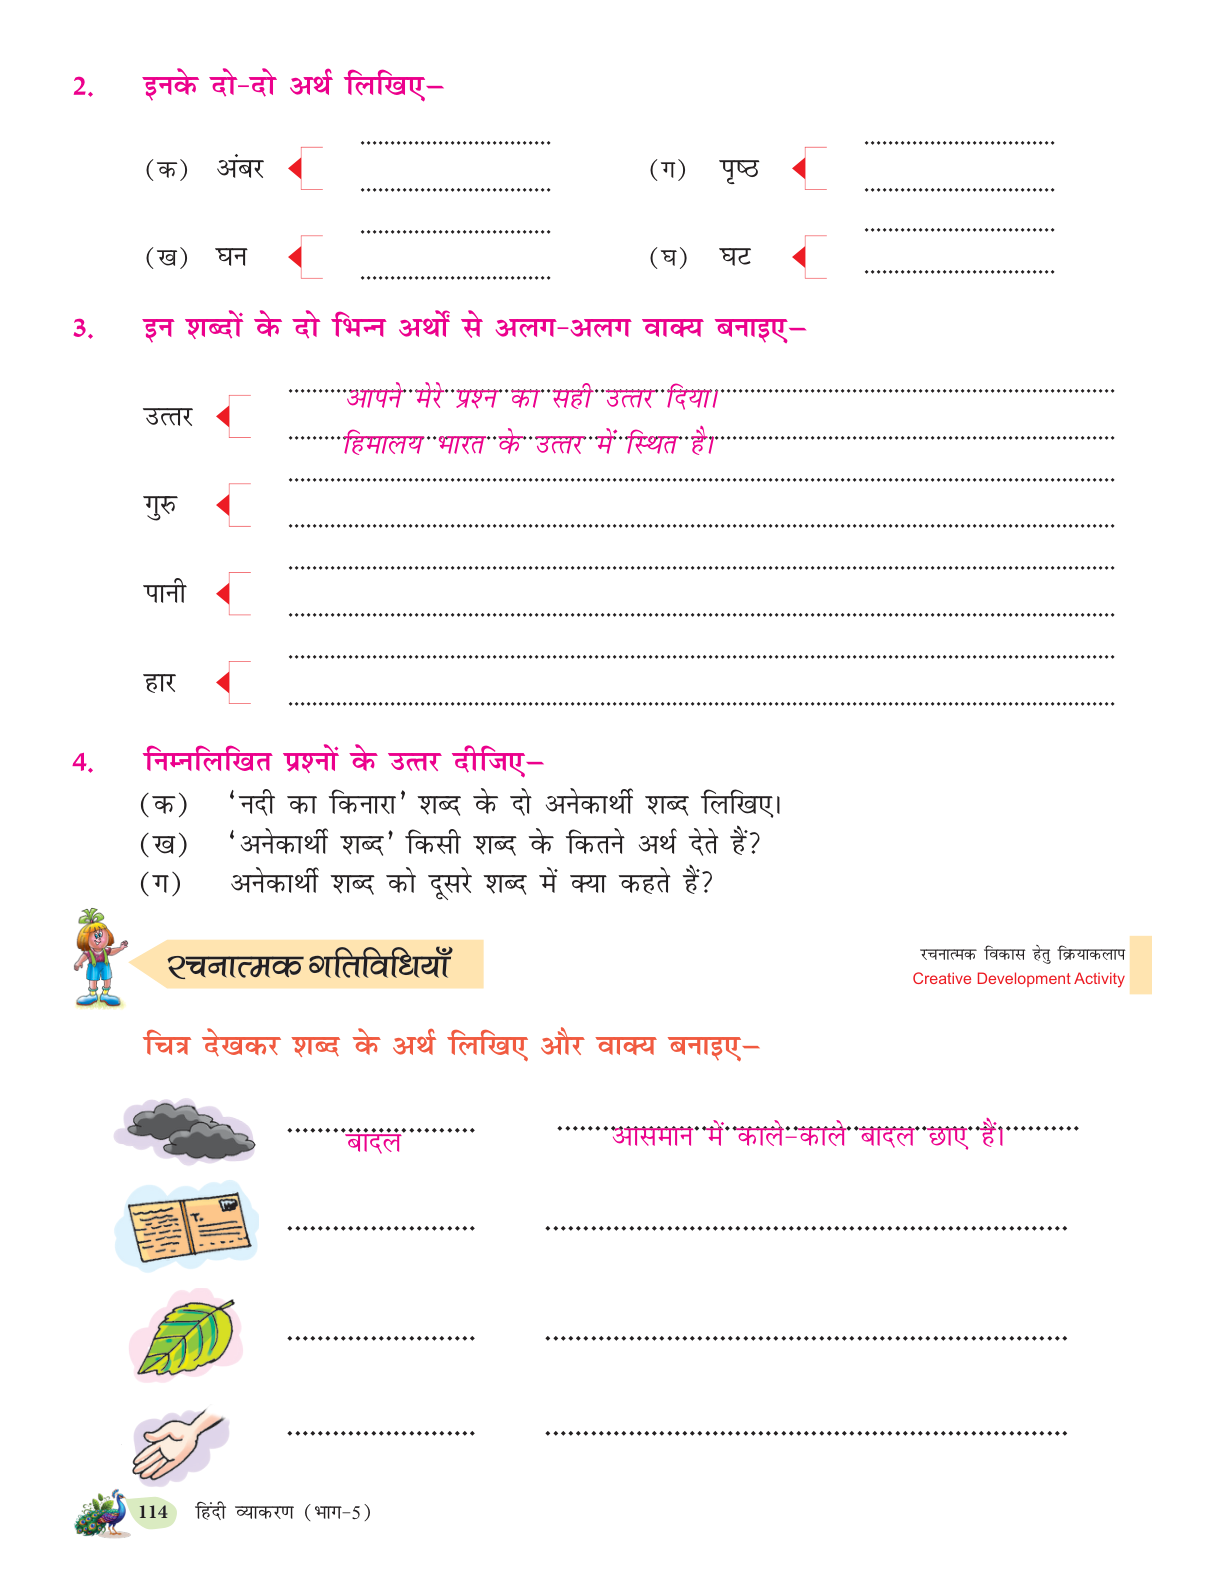 2. इनके दो-दो अर्थ लिखिए–
(क) अंबर (ग) पृष्ठ
(ख) घन (घ) घट
3. इन शब्दों के दो भिन्न अर्थों से अलग-अलग वाक्य बनाइए–
आपने मेरे प्रश्न का सही उत्तर दिया।
उत्तर
हिमालय भारत के उत्तर में स्थित है।
गुरु
पानी
हार
4. निम्नलिखित प्रश्नों के उत्तर दीजिए–
(क) ‘नदी का किनारा’ शब्द के दो अनेकार्थी शब्द लिखिए।
(ख) ‘अनेकार्थी शब्द’ किसी शब्द के कितने अर्थ देते हैं?
(ग) अनेकार्थी शब्द को दूसरे शब्द में क्या कहते हैं?
रचनात्मक गतिविधियाँ
रचनात्मक विकास हेतु क्रियाकलाप
Creative Development Activity
चित्र देखकर शब्द के अर्थ लिखिए और वाक्य बनाइए–
बादल आसमान में काले-काले बादल छाए हैं।
114 हिंदी व्याकरण (भाग-5)